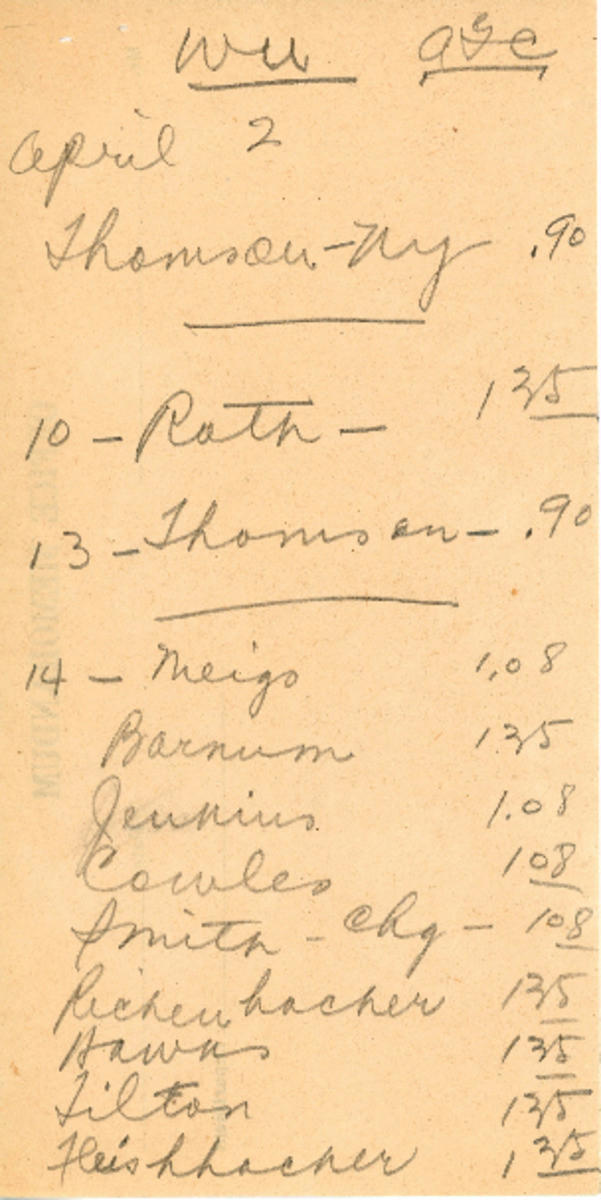 WU AGC
April 2
Thomson - NY .90
10 - Roth - 1 35
13 - Thomson - .90
14 - Meigs 1.08
Barnum 1 35
Jenkins 1.08
Cowles 1 08
Smith - chg - 1 08
Richenbacher 1 35
Hawks 1 35
Tilton 1 35
Fleishhacker 1 35